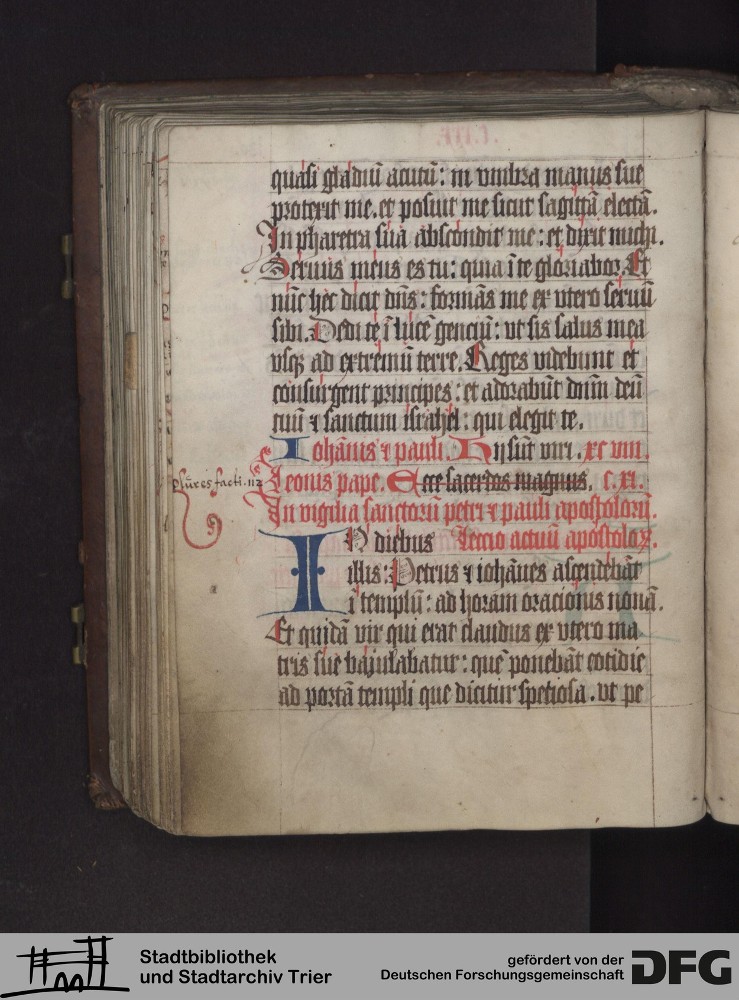 quasi gladiū acutū: in vmbra manus sue
protexit me. et posuit me sicut sagittā electā.
In pharetra sua abscondit me: et dixit michi.
Seruus meus es tu: quia ī te gloriabor. Et
nūc hec dicit dn̄s: formās me ex vtero seruū
sibi. Dedi te ī lucē genciū: vt sis salus mea
vsqꝫ ad extremū terre. Reges videbunt et
consurgent principes: et adorabūt dn̄m deū
tuū ⁊ sanctum israhel: qui elegit te.
Iohānis ⁊ pauli. Hij sūt viri. xc viii.
Leonis pape. Ecce sacerdos magnus. c. xi.
plures facti. 112
In vigilia sanctorū petri ⁊ pauli apostolorū.
IN diebus Lectio actuū apostoloꝝ.
illis: Petrus ⁊ iohānes ascendebāt
ī templū: ad horam oracionis nonā.
Et quidā vir qui erat claudus ex vtero ma
tris sue baiulabatur: quē ponebāt cotidie
ad portā templi que dicitur speciosa. vt pe
Stadtbibliothek
und Stadtarchiv Trier
gefördert von der
Deutschen Forschungsgemeinschaft
DFG